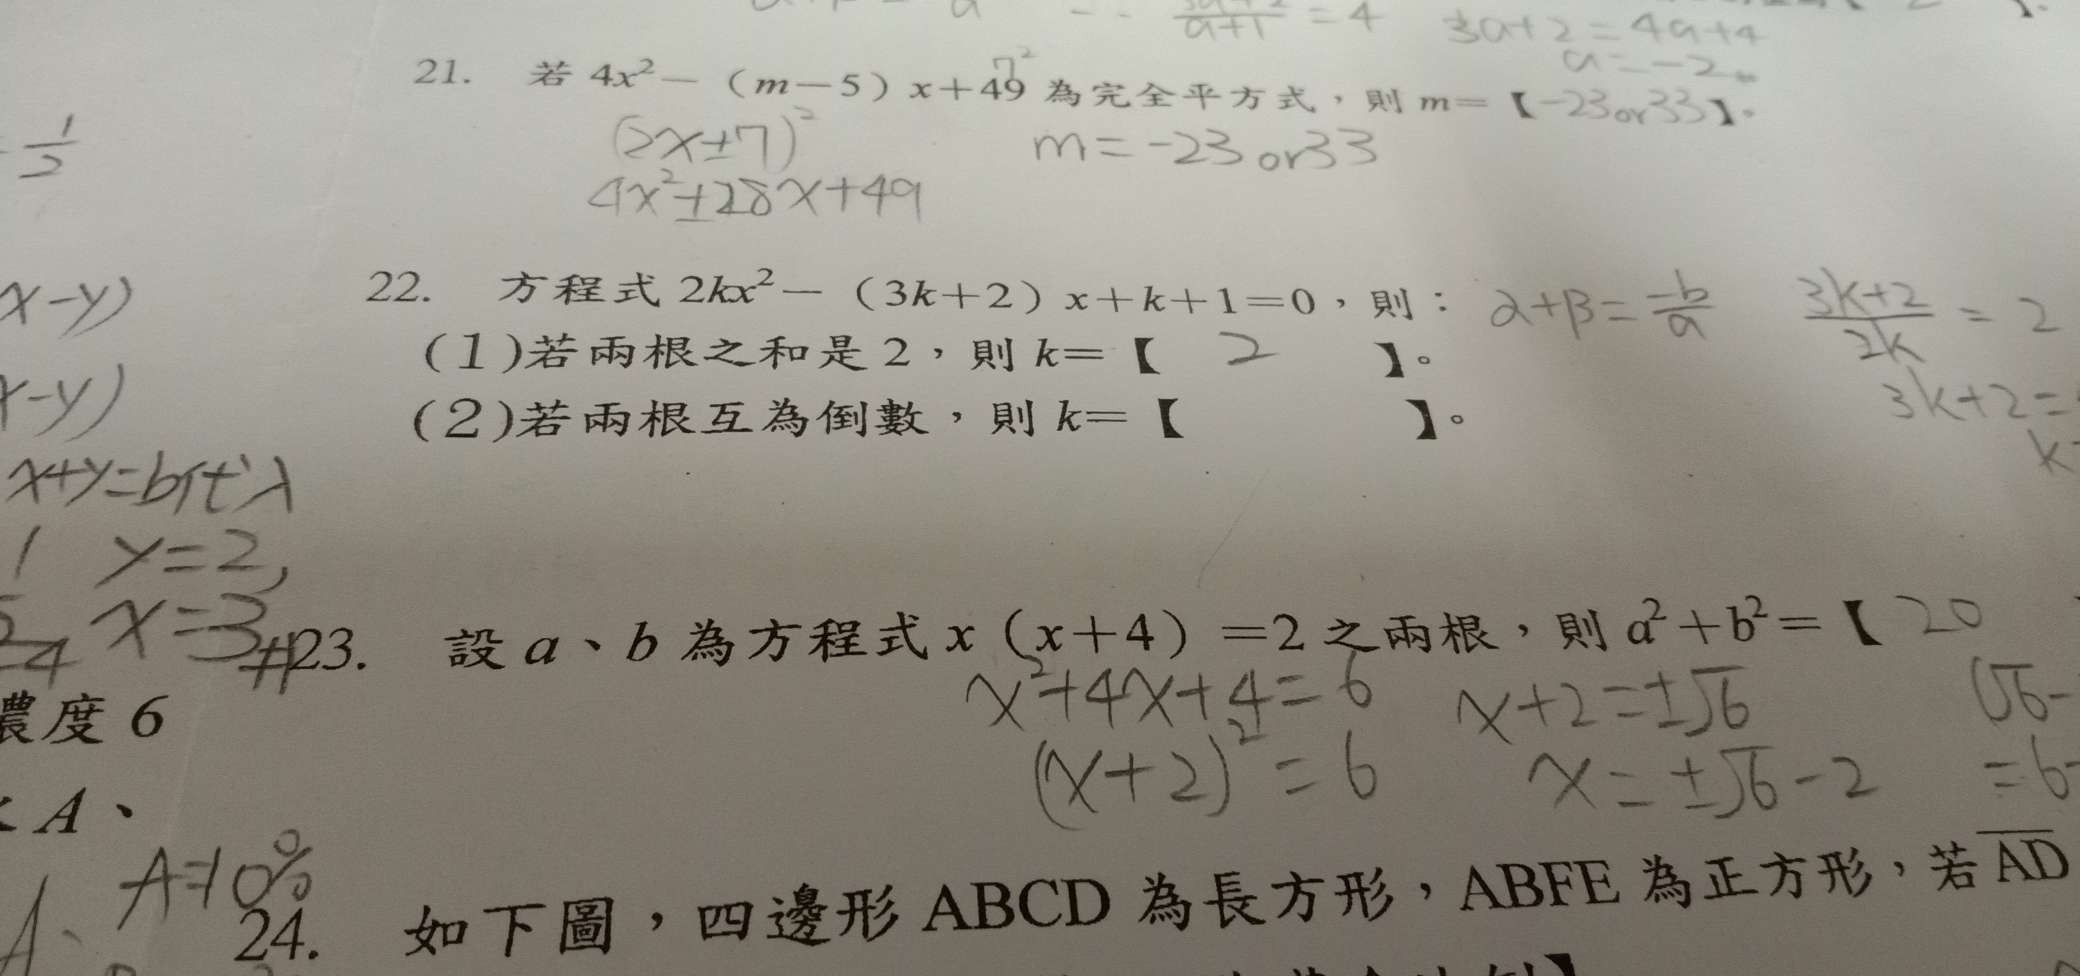 = 4 3a+2=4a+4
a=-2
21. 若 4x²－（m－5）x＋49 為完全平方式，則 m＝【-23or33】。
7²
(2x±7)² m=-23or33
4x²±28x+49
1/2
22. 方程式 2kx²－（3k＋2）x＋k＋1＝0，則：
α+β=-b/a (3k+2)/2k = 2
x-y)
(1)若兩根之和是 2，則 k＝【 2 】。
3k+2=
x-y)
(2)若兩根互為倒數，則 k＝【 】。
x+y=b代入
y=2,
x=3
#23. 設 a、b 為方程式 x（x＋4）＝2 之兩根，則 a²＋b²＝【 20
x²+4x+4=6 x+2=±√6 (√6-
(x+2)²=6 x=±√6-2 =6-
濃度 6
A、
A=10%
24. 如下圖，四邊形 ABCD 為長方形，ABFE 為正方形，若 AD